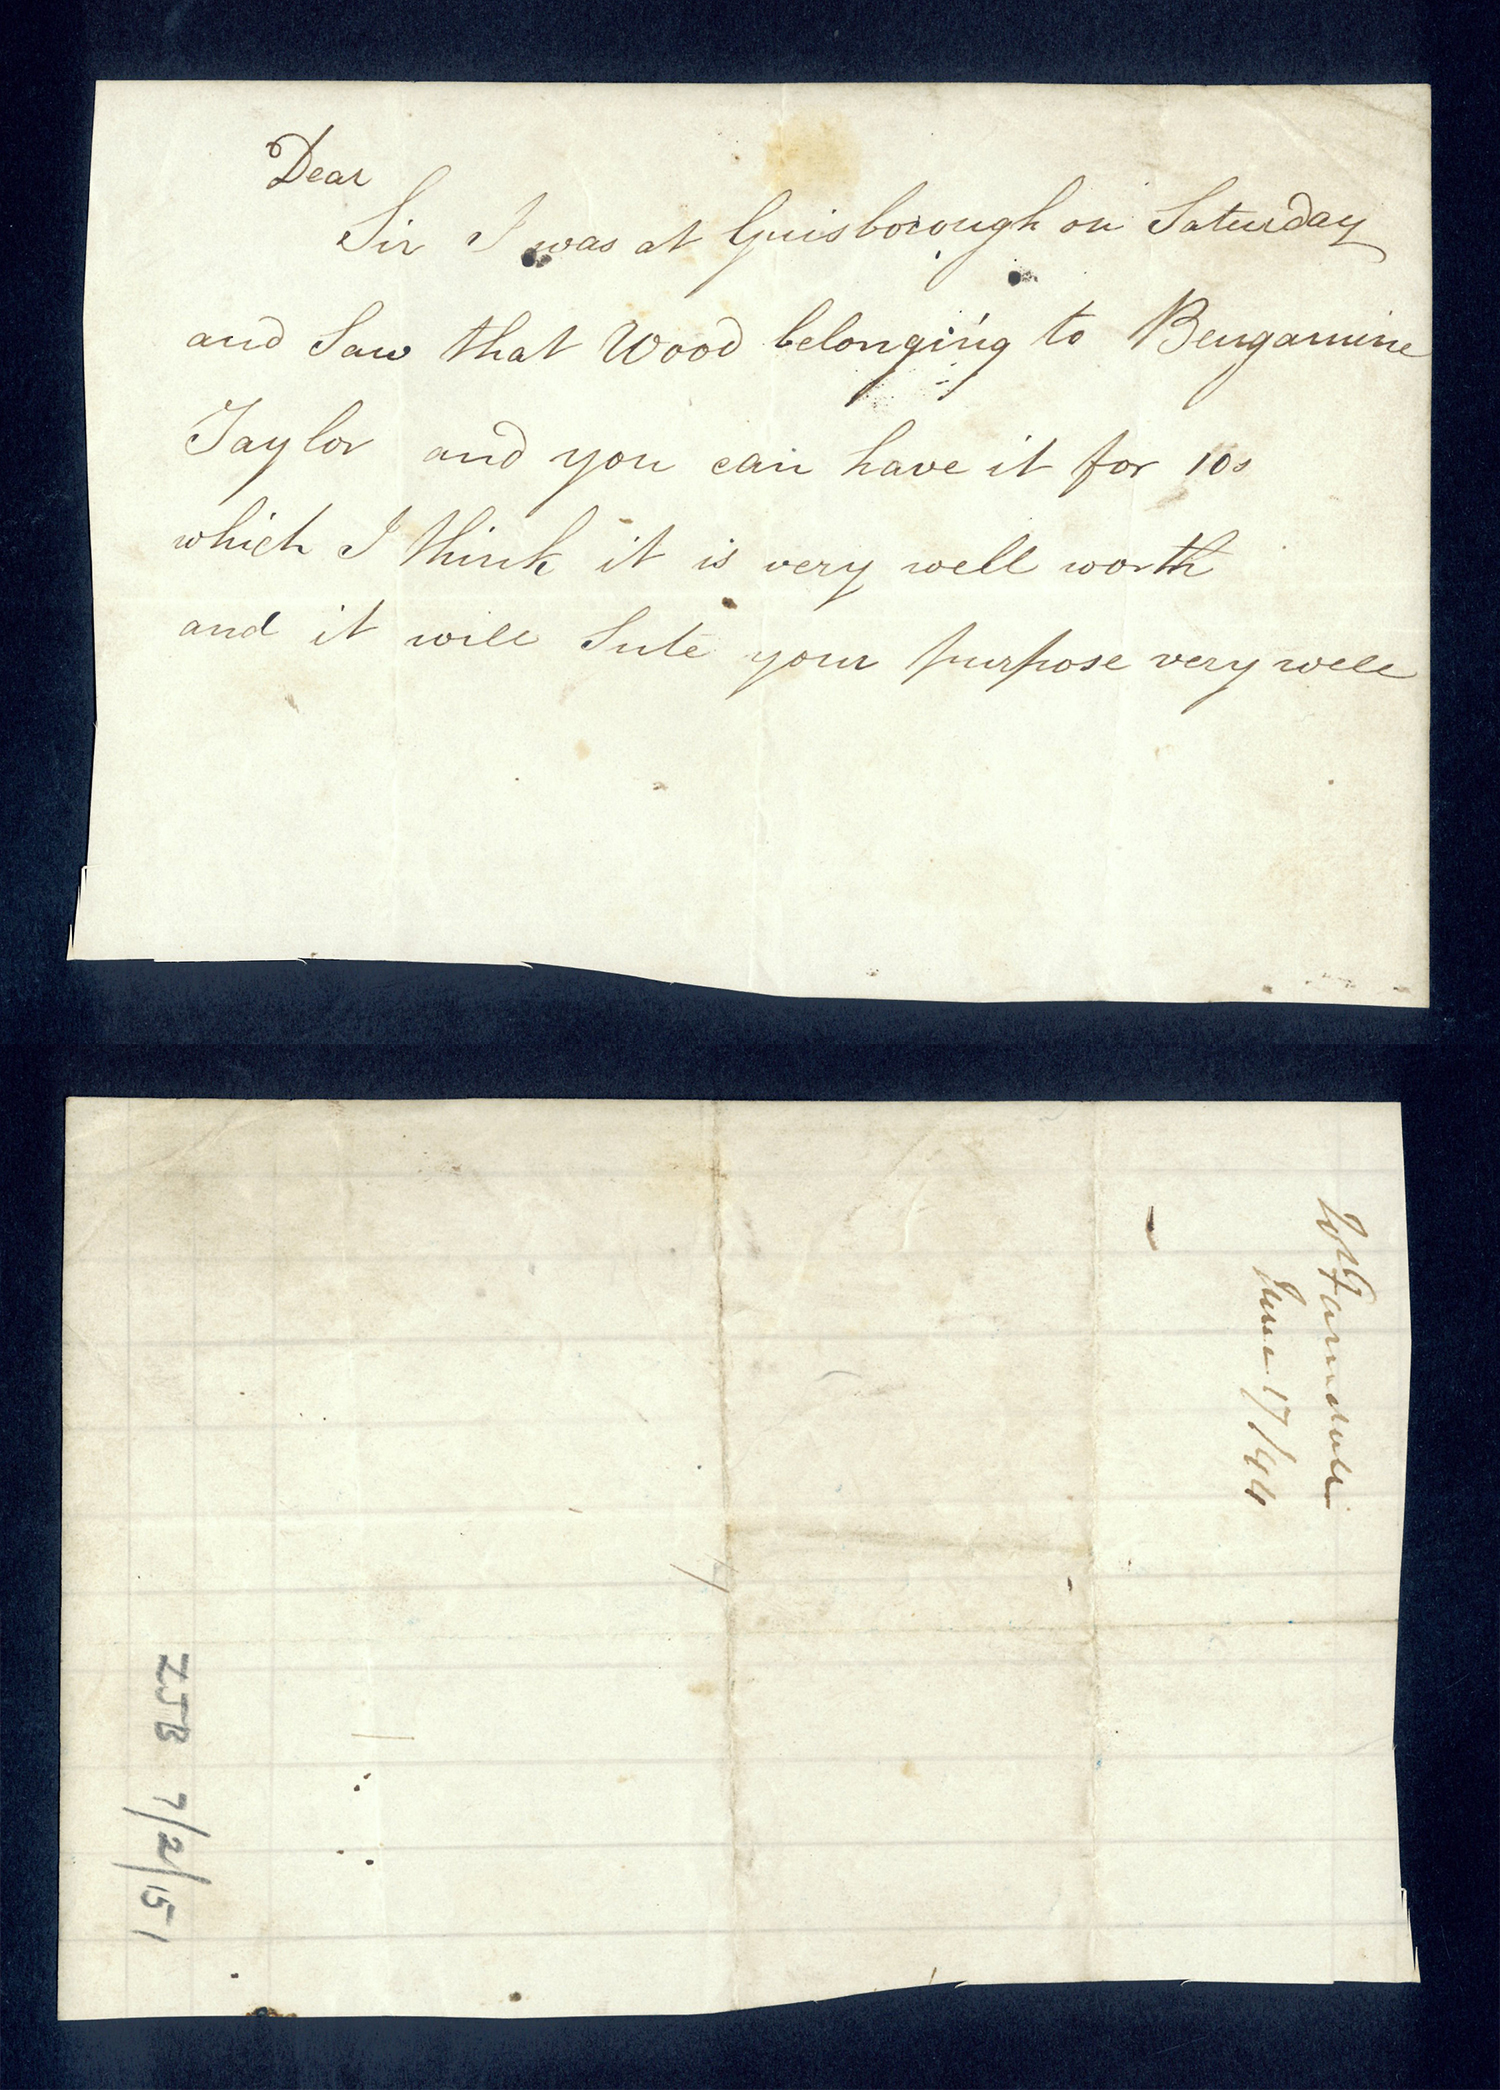 Dear
Sir I was at Guisborough on Saturday
and Saw that Wood belonging to Bengamine
Taylor and you can have it for 10s
which I think it is very well worth
and it will Sute your purpose very well
Wm Farndale
June 17/44
ZJB 7/2/151